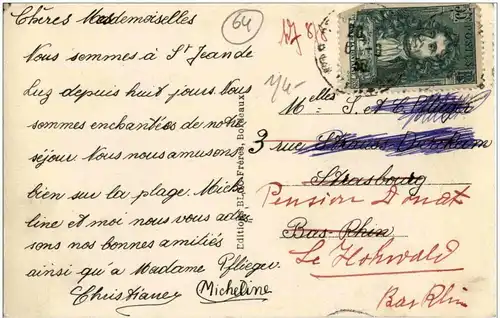 Chères Mesdemoiselles
Nous sommes à St Jean de
Luz depuis huit jours. Nous
sommes enchantées de notre
séjour. Nous nous amusons
bien sur la plage. Miche
line et moi nous vous adres
sons nos bonnes amitiés
ainsi qu'à Madame Pflieger
Christiane
Micheline
64
1/4-
Melles S. et
3 rue Strauss-Durckheim
Strasbourg
Bas-Rhin
Pension Donat
Le Hohwald
Bas Rhin
Editions BLOC Frères, Bordeaux